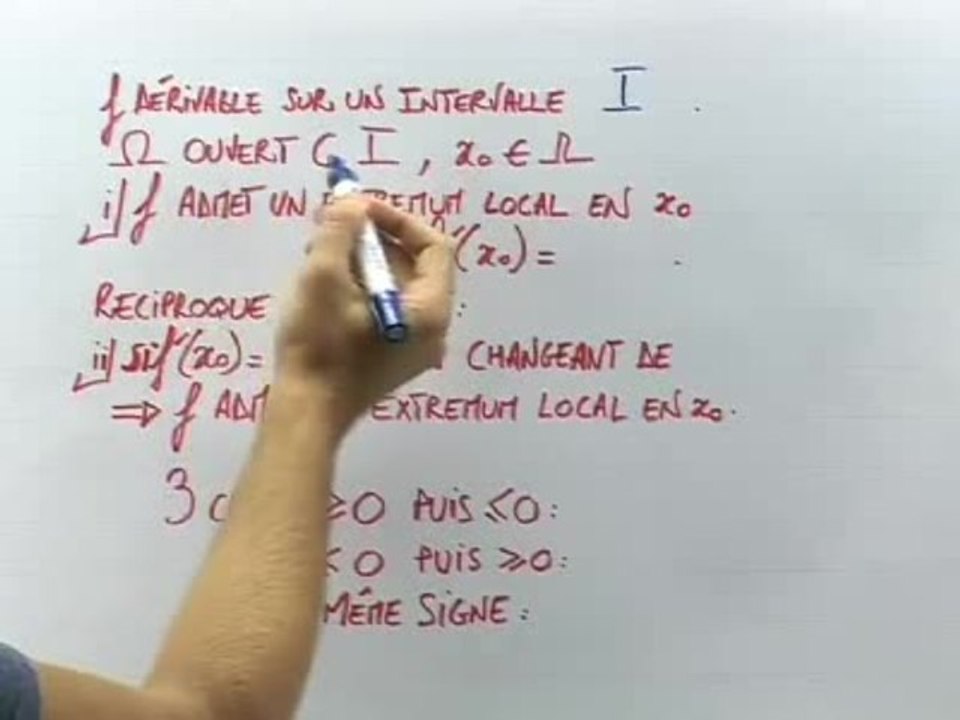 f DÉRIVABLE SUR UN INTERVALLE I .
Ω OUVERT ⊂ I , x₀ ∈ Ω
i) f ADMET UN EXTREMUM LOCAL EN x₀
(x₀) = .
RECIPROQUE :
ii) si f'(x₀) = CHANGEANT DE
⇒ f EXTREMUM LOCAL EN x₀.
3 ≥0 PUIS ≤0 :
≤ 0 PUIS ≥0 :
MÊME SIGNE :